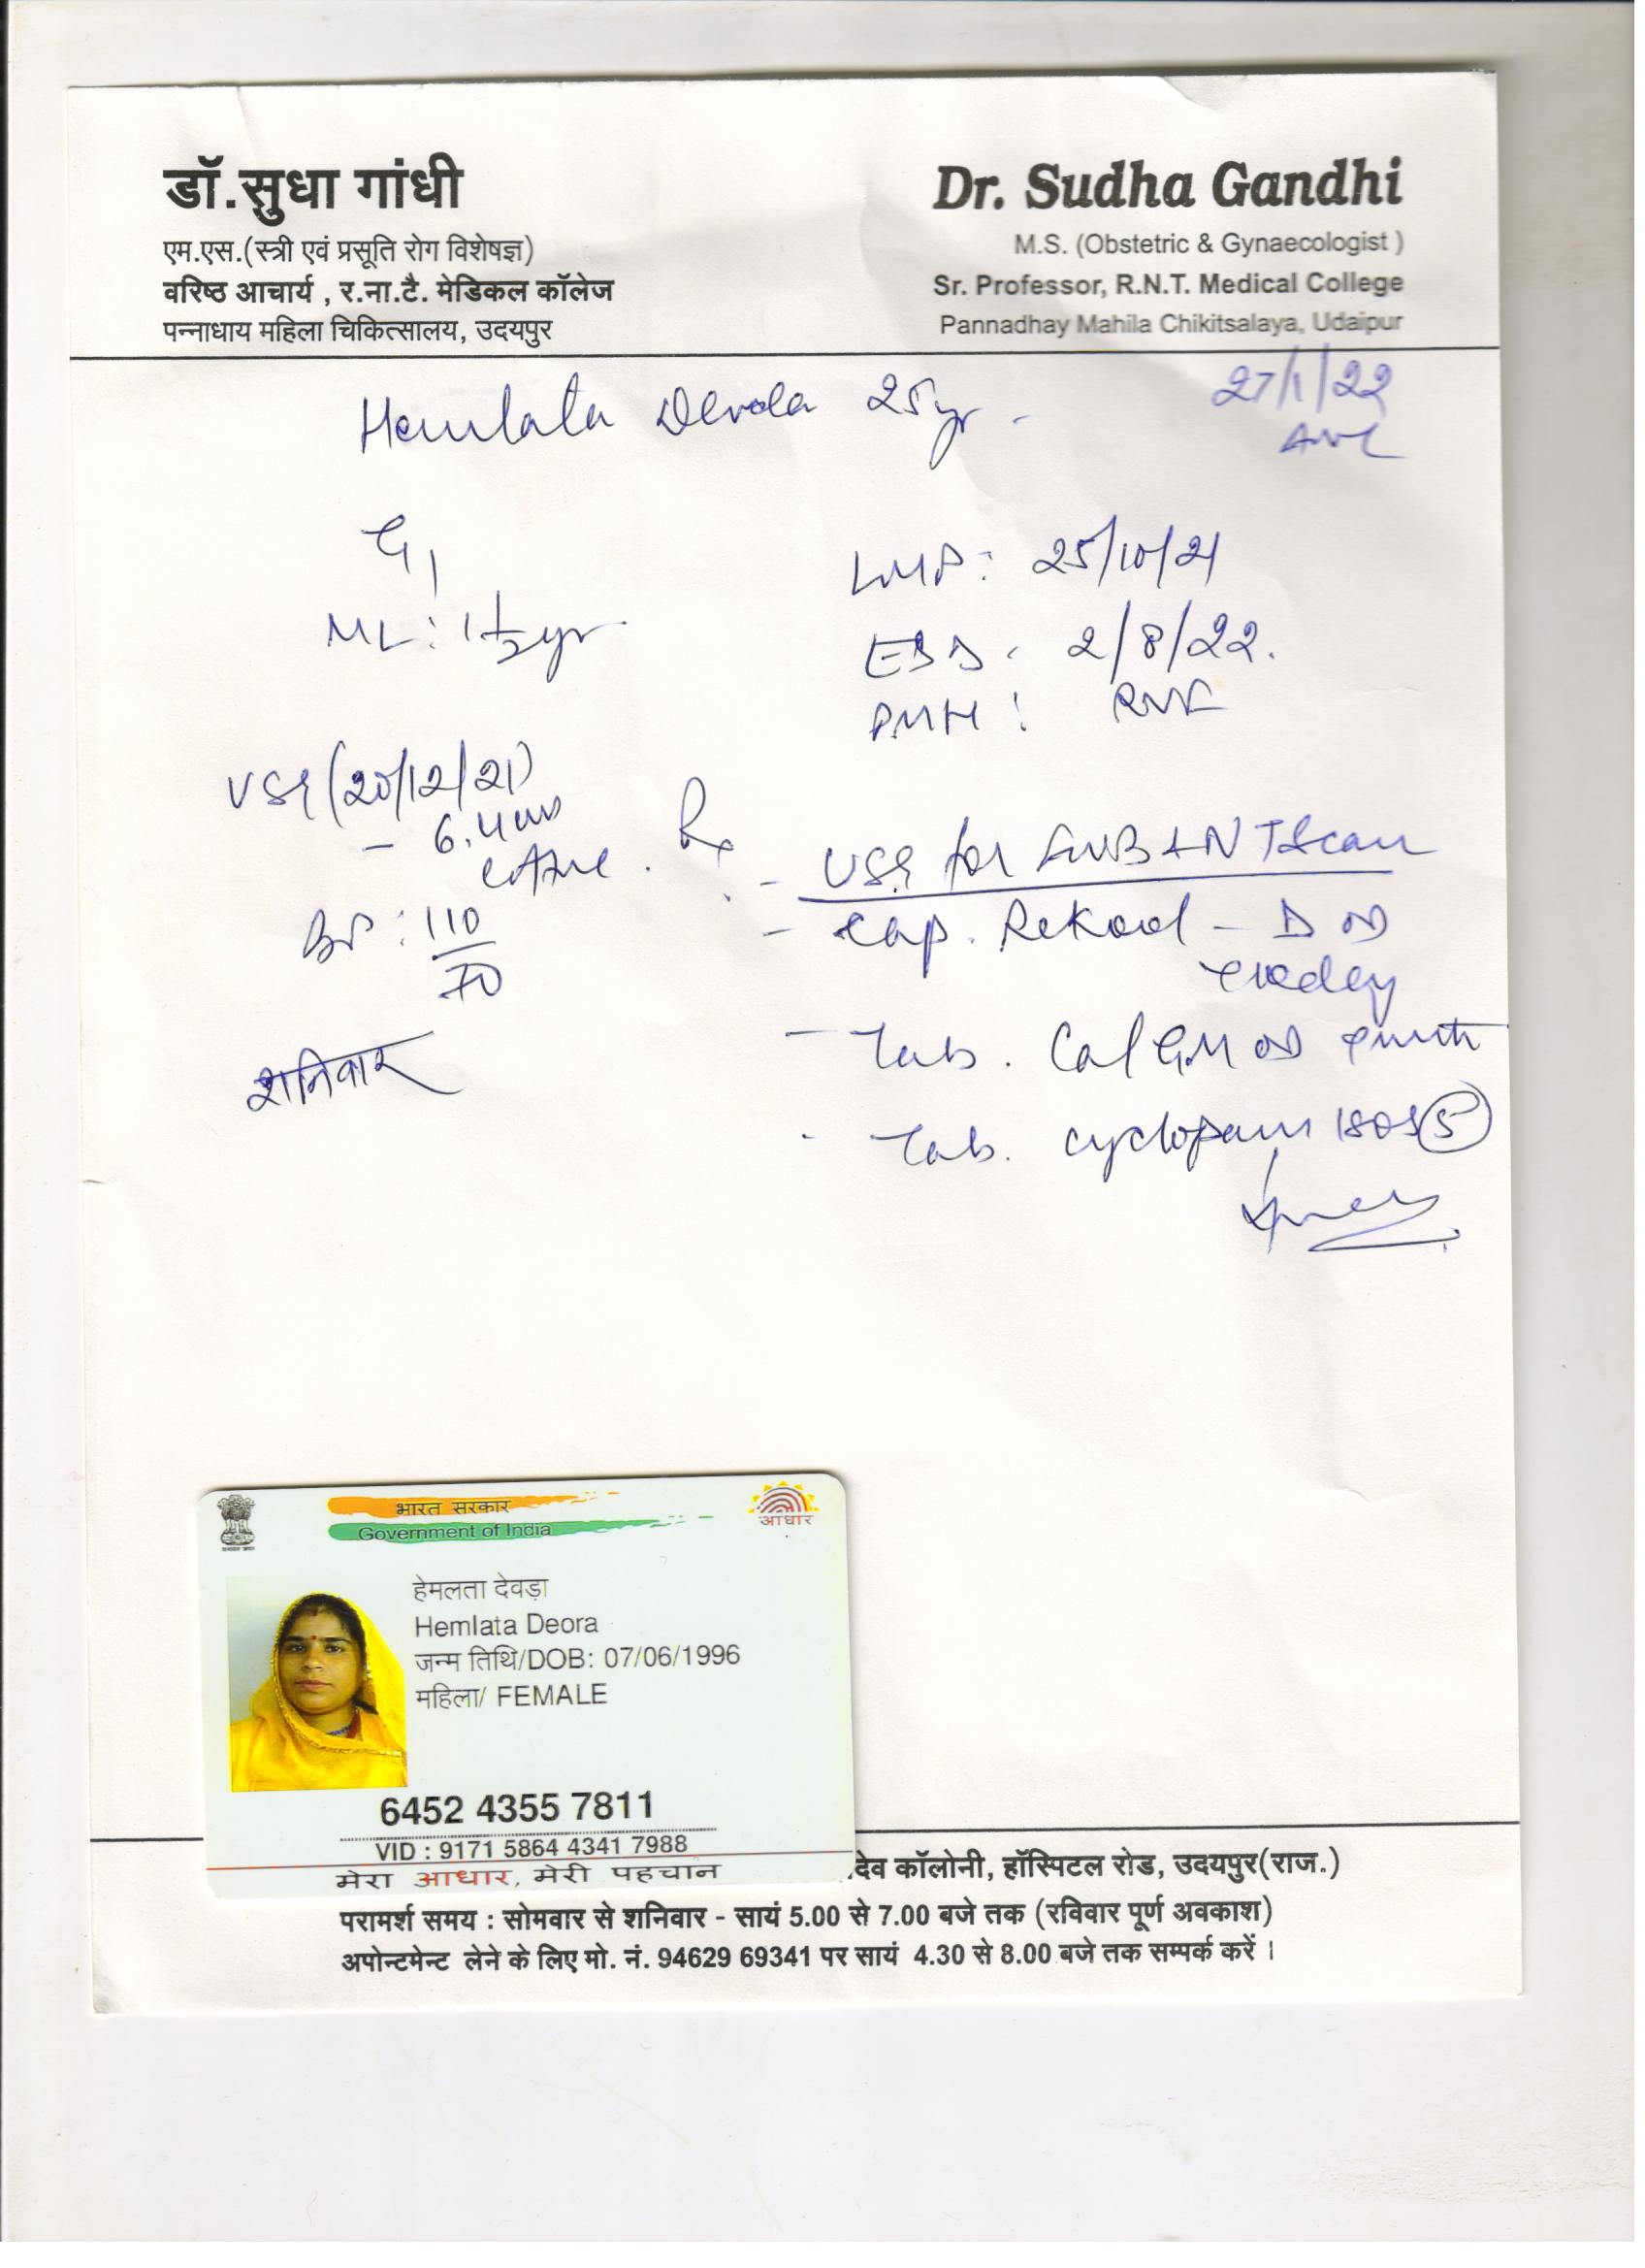 डॉ.सुधा गांधी
एम.एस.(स्त्री एवं प्रसूति रोग विशेषज्ञ)
वरिष्ठ आचार्य , र.ना.टै. मेडिकल कॉलेज
पन्नाधाय महिला चिकित्सालय, उदयपुर
Dr. Sudha Gandhi
M.S. (Obstetric & Gynaecologist )
Sr. Professor, R.N.T. Medical College
Pannadhay Mahila Chikitsalaya, Udaipur
27/1/22
Hemlata 25yr
G1
ML: 1 1/2 yr
LMP: 25/10/21
EDD. 2/8/22.
PMH:
USG (20/12/21)
- 6.4
BP: 110/70
शनिवार
Rx
- USG for NT Scan
- Cap. - D
- Tab. OD
- Tab. cyclopam 5
भारत सरकार
Government of India
आधार
हेमलता देवड़ा
Hemlata Deora
जन्म तिथि/DOB: 07/06/1996
महिला/ FEMALE
6452 4355 7811
VID : 9171 5864 4341 7988
मेरा आधार, मेरी पहचान
देव कॉलोनी, हॉस्पिटल रोड, उदयपुर(राज.)
परामर्श समय : सोमवार से शनिवार - सायं 5.00 से 7.00 बजे तक (रविवार पूर्ण अवकाश)
अपोन्टमेन्ट लेने के लिए मो. नं. 94629 69341 पर सायं 4.30 से 8.00 बजे तक सम्पर्क करें ।